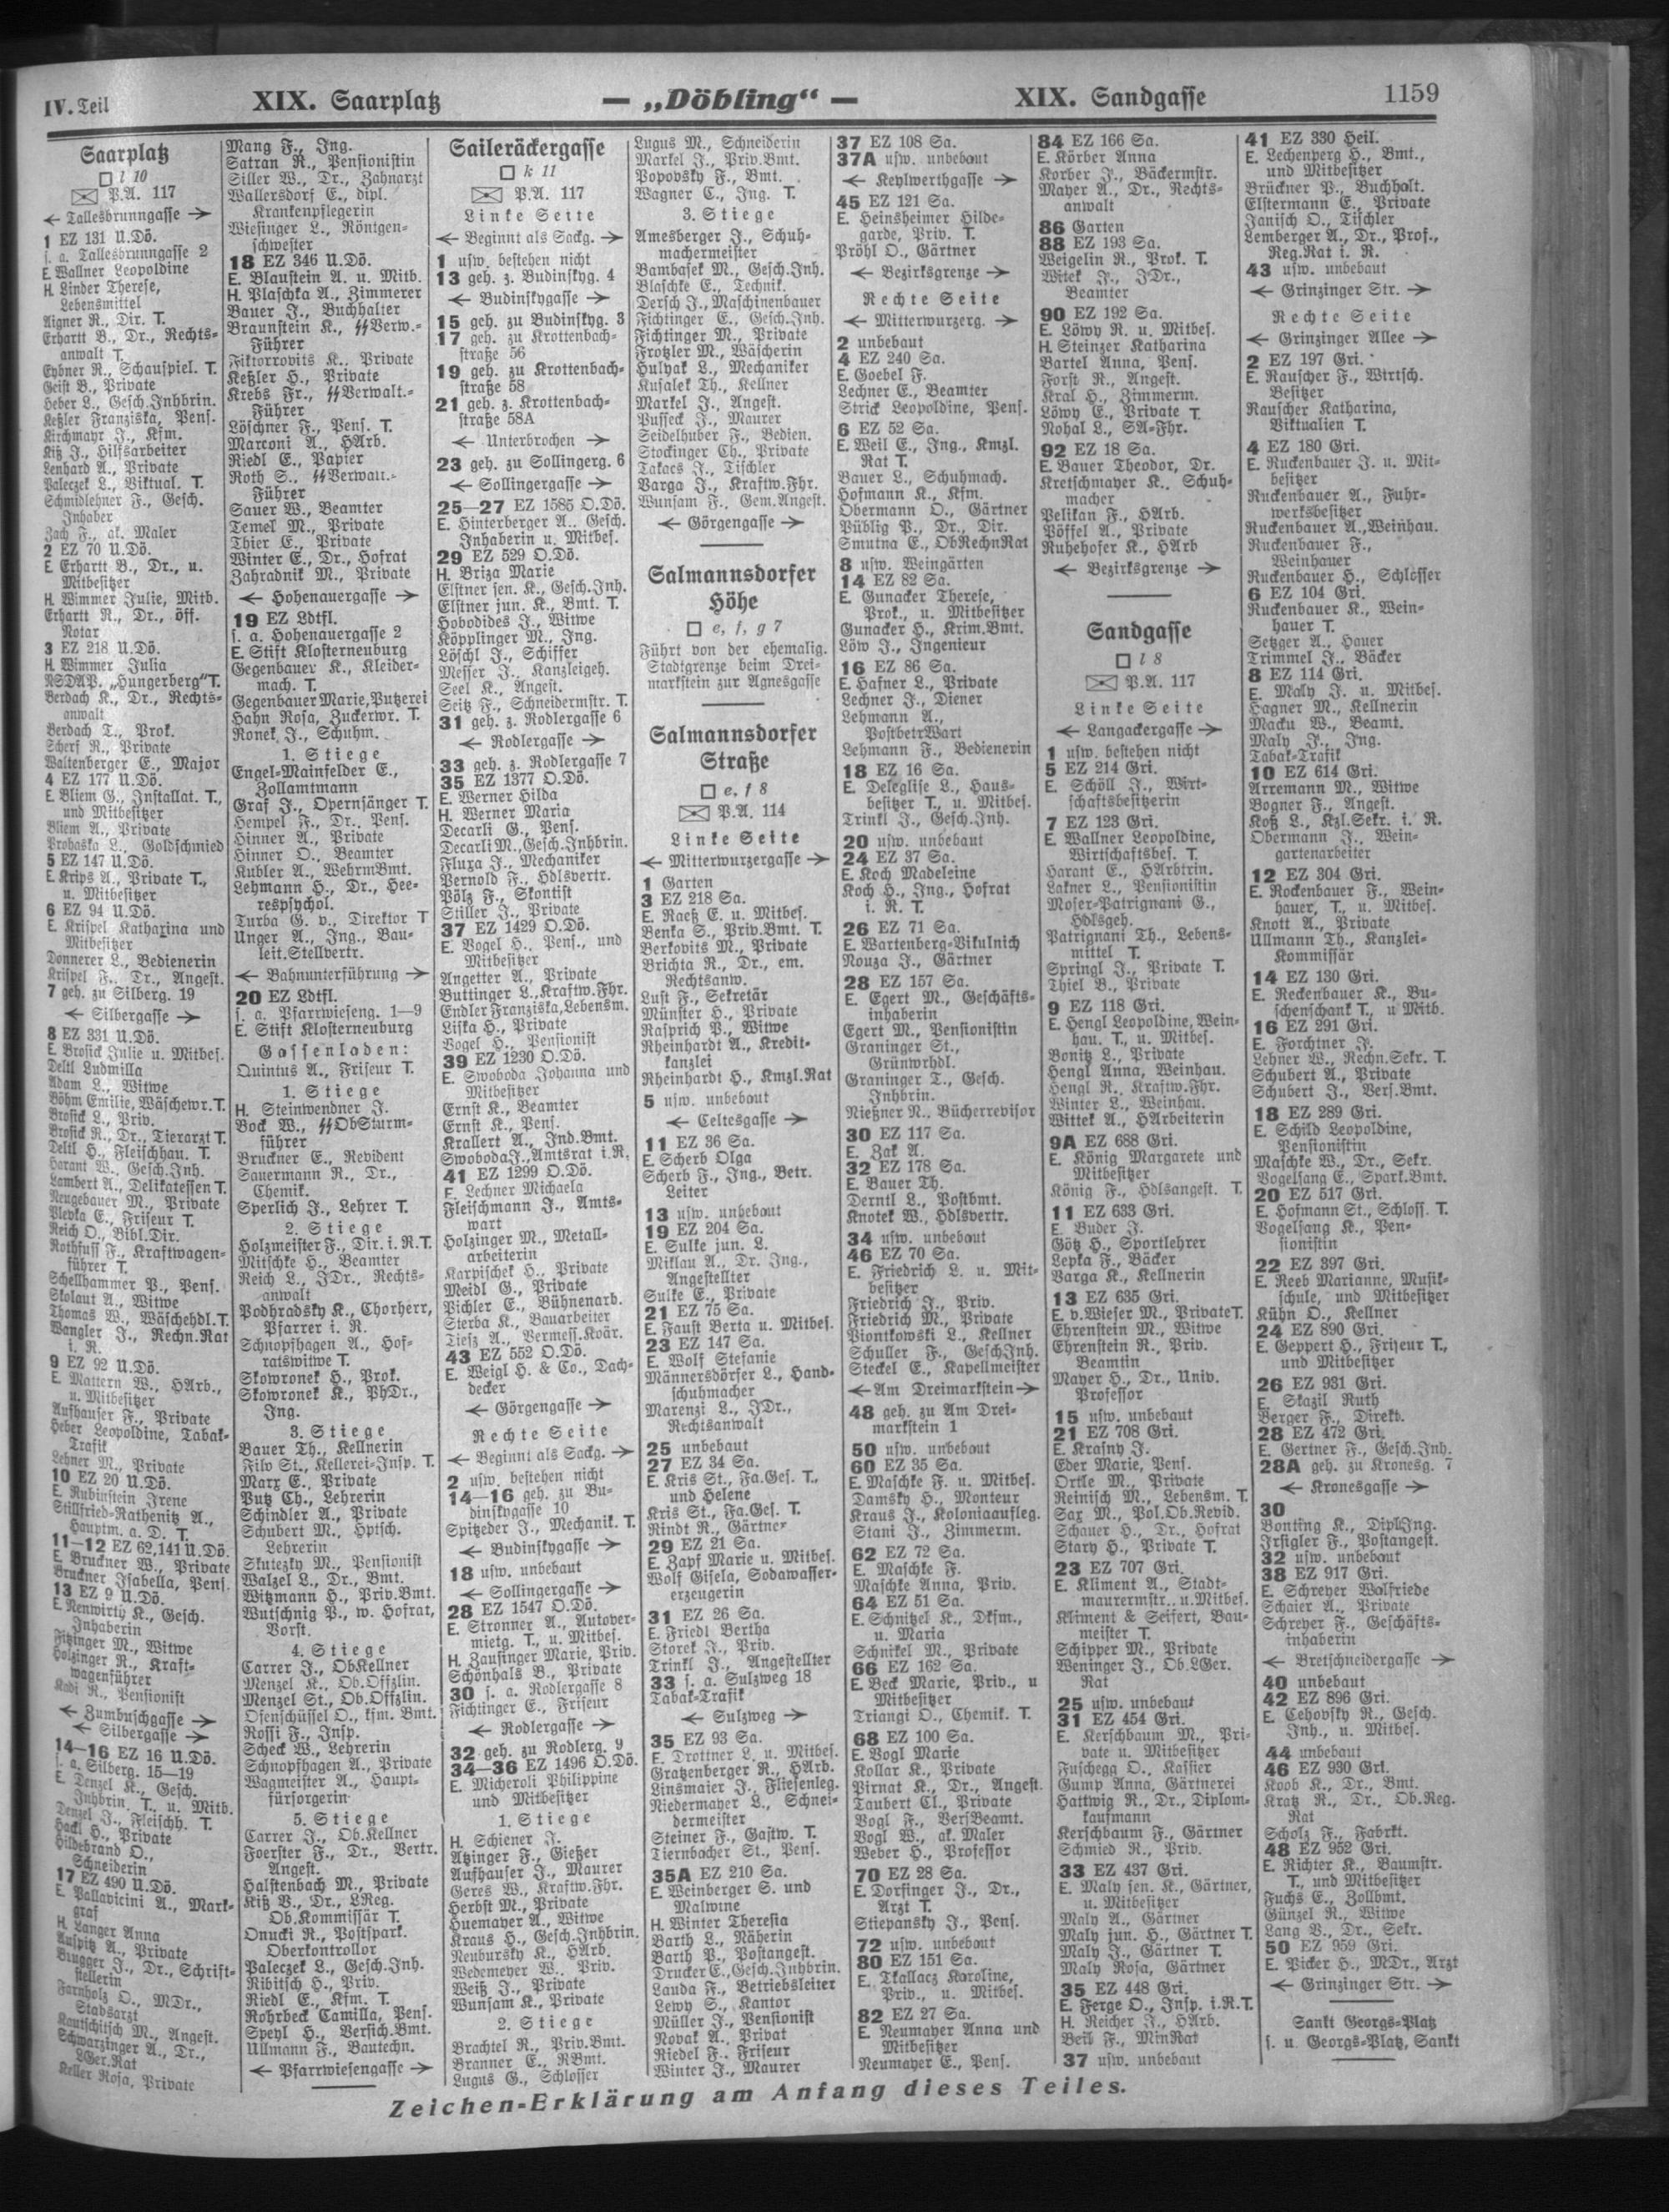 IV. Teil
XIX. Saarplatz
— „Döbling“ —
XIX. Sandgasse
1159
Saarplatz
□ l 10
P.A. 117
← Tallesbrunngasse →
1 EZ 131 U.Dö.
s. a. Tallesbrunngasse 2
E. Wallner Leopoldine
H. Linder Therese,
Lebensmittel
Aigner R., Dir. T.
Erhartt B., Dr., Rechts-
anwalt T.
Eybner R., Schauspiel. T.
Geist B., Private
Heber L., Gesch.Inhbrin.
Keßler Franziska, Pens.
Kirchmayr J., Kfm.
Kiß J., Hilfsarbeiter
Lenhard A., Private
Paleczek L., Viktual. T.
Schmidlehner F., Gesch.
Inhaber
Zach F., ak. Maler
2 EZ 70 U.Dö.
E Erhartt B., Dr., u.
Mitbesitzer
H. Wimmer Julie, Mitb.
Erhartt R., Dr., öff.
Notar
3 EZ 218 U.Dö.
H. Wimmer Julia
NSDAP. „Hungerberg“ T.
Berdach K., Dr., Rechts-
anwalt
Berdach T., Prok.
Scherf R., Private
Waltenberger E., Major
4 EZ 177 U.Dö.
E. Bliem G., Installat. T.,
und Mitbesitzer
Bliem A., Private
Prohaska L., Goldschmied
5 EZ 147 U.Dö.
E. Krips A., Private T.,
u. Mitbesitzer
6 EZ 94 U.Dö.
E. Krispel Katharina und
Mitbesitzer
Donnerer L., Bedienerin
Krispel F., Dr., Angest.
7 geh. zu Silberg. 19
← Silbergasse →
8 EZ 331 U.Dö.
E. Brosick Julie u. Mitbes.
Deltl Ludmilla
Adam L., Witwe
Böhm Emilie, Wäschewr. T.
Brosick L., Priv.
Brosick R., Dr., Tierarzt T.
Deltl H., Fleischhau. T.
Harant W., Gesch.Inh.
Lambert A., Delikatessen T.
Neugebauer M., Private
Plevka E., Friseur T.
Reich O., Bibl.Dir.
Rothfuss F., Kraftwagen-
führer T.
Schellhammer P., Pens.
Skolaut A., Witwe
Thomas W., Wäschehdl. T.
Wangler J., Rechn.Rat
i. R.
9 EZ 92 U.Dö.
E. Mattern W., HArb.,
u. Mitbesitzer
Aufhauser F., Private
Heber Leopoldine, Tabak-
Trafik
Lehner M., Private
10 EZ 20 U.Dö.
E. Rubinstein Irene
Stillfried-Rathenitz A.,
Hauptm. a. D. T.
11—12 EZ 62,141 U.Dö.
E. Bruckner W., Private
Bruckner Isabella, Pens.
13 EZ 9 U.Dö.
E. Nenwirty K., Gesch.
Inhaberin
Fitzinger M., Witwe
Holzinger R., Kraft-
wagenführer
Kadi R., Pensionist
← Zumbuschgasse →
← Silbergasse →
14—16 EZ 16 U.Dö.
s. a. Silberg. 15—19
E. Denzel K., Gesch.
Inhbrin. T., u. Mitb.
Denzel J., Fleischh. T.
Hackl H., Private
Hildebrand O.,
Schneiderin
17 EZ 490 U.Dö.
E. Pallavicini A., Mark-
graf
H. Langer Anna
Auspitz A., Private
Bingger J., Dr., Schrift-
stellerin
Farnholz O., MDr.,
Stabsarzt
Kautschitsch M., Angest.
Schwarzinger A., Dr.,
LGer.Rat
Keller Rosa, Private
Mang F., Ing.
Satran R., Pensionistin
Siller W., Dr., Zahnarzt
Wallersdorf E., dipl.
Krankenpflegerin
Wiesinger L., Röntgen-
schwester
18 EZ 346 U.Dö.
E. Blaustein A. u. Mitb.
H. Plaschka A., Zimmerer
Bauer J., Buchhalter
Braunstein K., ᛋᛋVerw.-
Führer
Fiktorrovits K., Private
Keßler H., Private
Krebs Fr., ᛋᛋVerwalt.-
Führer
Löschner F., Pens. T.
Marconi A., HArb.
Riedl E., Papier
Roth S., ᛋᛋVerwalt.-
Führer
Sauer W., Beamter
Temel M., Private
Thier E., Private
Winter E., Dr., Hofrat
Zahradnik M., Private
← Hohenauergasse →
19 EZ Ldtfl.
s. a. Hohenauergasse 2
E. Stift Klosterneuburg
Gegenbauer K., Kleider-
mach. T.
Gegenbauer Marie, Putzerei
Hahn Rosa, Zuckerwr. T.
Ronek J., Schuhm.
1. Stiege
Engel-Mainfelder E.,
Zollamtmann
Graf J., Opernsänger T.
Hempel F., Dr., Pens.
Hinner A., Private
Hinner O., Beamter
Kubler A., WehrmBmt.
Lehmann H., Dr., Hee-
respsychol.
Turba G. v., Direktor T
Unger A., Ing., Bau-
leit.Stellvertr.
← Bahnunterführung →
20 EZ Ldtfl.
s. a. Pfarrwieseng. 1—9
E. Stift Klosterneuburg
Gassenladen:
Quintus A., Friseur T.
1. Stiege
H. Steinwendner J.
Bock W., ᛋᛋObSturm-
führer
Bruckner E., Revident
Sauermann R., Dr.,
Chemik.
Sperlich J., Lehrer T.
2. Stiege
Holzmeister F., Dir. i. R. T.
Mitschke H., Beamter
Reich L., JDr., Rechts-
anwalt
Podhradsky K., Chorherr,
Pfarrer i. R.
Schnopfhagen A., Hof-
ratswitwe T.
Skowronek H., Prok.
Skowronek K., PhDr.,
Ing.
3. Stiege
Bauer Th., Kellnerin
Filv St., Kellerei-Insp. T.
Marx E., Private
Putz Ch., Lehrerin
Schindler A., Private
Schubert M., Hptsch.
Lehrerin
Skutezky M., Pensionist
Walzel L., Dr., Bmt.
Witzmann H., Priv.Bmt.
Wutschnig P., w. Hofrat,
Vorst.
4. Stiege
Carrer J., ObKellner
Menzel K., Ob.Offzlin.
Menzel St., Ob.Offzlin.
Ofenschüssel O., kfm. Bmt.
Rossi F., Insp.
Scheck W., Lehrerin
Schnopfhagen A., Private
Wagmeister A., Haupt-
fürsorgerin
5. Stiege
Carrer J., Ob.Kellner
Foerster F., Dr., Vertr.
Angest.
Halstenbach M., Private
Kiß V., Dr., LReg.
Ob.Kommissär T.
Onucki R., Postspark.
Oberkontrollor
Paleczek L., Gesch.Inh.
Ribitsch H., Priv.
Riedl E., Kfm. T.
Rohrbeck Camilla, Pens.
Speyl H., Versich.Bmt.
Ullmann F., Bautechn.
← Pfarrwiesengasse →
Saileräckergasse
□ k 11
P.A. 117
Linke Seite
← Beginnt als Sackg. →
1 usw. bestehen nicht
13 geh. z. Budinskyg. 4
← Budinskygasse →
15 geh. zu Budinskyg. 3
17 geh. zu Krottenbach-
straße 56
19 geh. zu Krottenbach-
straße 58
21 geh. z. Krottenbach-
straße 58A
← Unterbrochen →
23 geh. zu Sollingerg. 6
← Sollingergasse →
25—27 EZ 1585 O.Dö.
E. Hinterberger A., Gesch.
Inhaberin u. Mitbes.
29 EZ 529 O.Dö.
H. Briza Marie
Elstner sen. K., Gesch.Inh.
Elstner jun. K., Bmt. T.
Hobodides J., Witwe
Köpplinger M., Ing.
Löschl J., Schiffer
Messer J., Kanzleigeh.
Seel K., Angest.
Seitz F., Schneidermstr. T.
31 geh. z. Rodlergasse 6
← Rodlergasse →
33 geh. z. Rodlergasse 7
35 EZ 1377 O.Dö.
E. Werner Hilda
H. Werner Maria
Decarli G., Pens.
Decarli M., Gesch.Inhbrin.
Fluxa J., Mechaniker
Pernold F., Hdlsvertr.
Pölz F., Skontist
Stiller J., Private
37 EZ 1429 O.Dö.
E. Vogel H., Pens., und
Mitbesitzer
Angetter A., Private
Buttinger L., Kraftw.Fhr.
Endler Franziska, Lebensm.
Liska H., Private
Vogel H., Pensionist
39 EZ 1230 O.Dö.
E. Swoboda Johanna und
Mitbesitzer
Ernst K., Beamter
Ernst K., Pens.
Krallert A., Ind.Bmt.
Swoboda J., Amtsrat i. R.
41 EZ 1299 O.Dö.
E. Lechner Michaela
Fleischmann J., Amts-
wart
Holzinger M., Metall-
arbeiterin
Karpischek H., Private
Meidl G., Private
Pichler E., Bühnenarb.
Sterba K., Bauarbeiter
Tiesz A., Vermess.Koär.
43 EZ 552 O.Dö.
E. Weigl H. & Co., Dach-
decker
← Görgengasse →
Rechte Seite
← Beginnt als Sackg. →
2 usw. bestehen nicht
14—16 geh. zu Bu-
dinskygasse 10
Spitzeder J., Mechanik. T.
← Budinskygasse →
18 usw. unbebaut
← Sollingergasse →
28 EZ 1547 O.Dö.
E. Stronner A., Autover-
mietg. T., u. Mitbes.
H. Zausinger Marie, Priv.
Schönhals B., Private
30 s. a. Rodlergasse 8
Fichtinger E., Friseur
← Rodlergasse →
32 geh. zu Rodlerg. 9
34—36 EZ 1496 O.Dö.
E. Micheroli Philippine
und Mitbesitzer
1. Stiege
H. Schiener J.
Atzinger F., Gießer
Aufhauser J., Maurer
Geres W., Kraftw.Fhr.
Herbst M., Private
Huemayer A., Witwe
Kraus H., Gesch.Inhbrin.
Neubursky K., HArb.
Wedemeyer W., Priv.
Weiß J., Private
Wunsam K., Private
2. Stiege
Brachtel R., Priv.Bmt.
Branner E., RBmt.
Lugus G., Schlosser
Lugus M., Schneiderin
Markel J., Priv.Bmt.
Popovsky F., Bmt.
Wagner C., Ing. T.
3. Stiege
Amesberger J., Schuh-
machermeister
Bambasek M., Gesch.Inh.
Blaschke E., Technik.
Dersch J., Maschinenbauer
Fichtinger E., Gesch.Inh.
Fichtinger M., Private
Frotzler M., Wäscherin
Hulyak L., Mechaniker
Kusalek Th., Kellner
Markel J., Angest.
Pusseck J., Maurer
Seidelhuber F., Bedien.
Stockinger Ch., Private
Takacs J., Tischler
Varga J., Kraftw.Fhr.
Wunsam F., Gem.Angest.
← Görgengasse →
Salmannsdorfer
Höhe
□ e, f, g 7
Führt von der ehemalig.
Stadtgrenze beim Drei-
markstein zur Agnesgasse
Salmannsdorfer
Straße
□ e, f 8
P.A. 114
Linke Seite
← Mitterwurzergasse →
1 Garten
3 EZ 218 Sa.
E. Raeß E. u. Mitbes.
Benka S., Priv.Bmt. T.
Berkovits M., Private
Brichta R., Dr., em.
Rechtsanw.
Lust F., Sekretär
Münster H., Private
Rasprich P., Witwe
Rheinhardt A., Kredit-
kanzlei
Rheinhardt H., Kmzl.Rat
5 usw. unbebaut
← Celtesgasse →
11 EZ 36 Sa.
E. Scherb Olga
Scherb F., Ing., Betr.
Leiter
13 usw. unbebaut
19 EZ 204 Sa.
E. Sulke jun. L.
Miklau A., Dr. Ing.,
Angestellter
Sulke E., Private
21 EZ 75 Sa.
E. Faust Berta u. Mitbes.
23 EZ 147 Sa.
E. Wolf Stefanie
Männersdörfer L., Hand-
schuhmacher
Marenzi L., JDr.,
Rechtsanwalt
25 unbebaut
27 EZ 34 Sa.
E. Kris St., Fa.Ges. T.,
und Helene
Kris St., Fa.Ges. T.
Rindt R., Gärtner
29 EZ 21 Sa.
E. Zapf Marie u. Mitbes.
Wolf Gisela, Sodawasser-
erzeugerin
31 EZ 26 Sa.
E. Friedl Bertha
Storek J., Priv.
Trinkl J., Angestellter
33 s. a. Sulzweg 18
Tabak-Trafik
← Sulzweg →
35 EZ 93 Sa.
E. Trottner L. u. Mitbes.
Gratzenberger R., HArb.
Linsmaier J., Fliesenleg.
Riedermayer L., Schnei-
dermeister
Steiner F., Gastw. T.
Tiernbacher St., Pens.
35A EZ 210 Sa.
E. Weinberger S. und
Malwine
H. Winter Theresia
Barth L., Näherin
Barth P., Postangest.
Drucker E., Gesch.Inhbrin.
Lauda F., Betriebsleiter
Lewy S., Kantor
Müller J., Pensionist
Novak A., Privat
Riedel F., Friseur
Winter J., Maurer
37 EZ 108 Sa.
37A usw. unbebaut
← Keylwerthgasse →
45 EZ 121 Sa.
E. Heinsheimer Hilde-
garde, Priv. T.
Pröhl O., Gärtner
← Bezirksgrenze →
Rechte Seite
← Mitterwurzerg. →
2 unbebaut
4 EZ 240 Sa.
E. Goebel F.
Lechner E., Beamter
Strick Leopoldine, Pens.
6 EZ 52 Sa.
E. Weil E., Ing., Kmzl.
Rat T.
Bauer L., Schuhmach.
Hofmann K., Kfm.
Obermann O., Gärtner
Püblig P., Dr., Dir.
Smutna E., ObRechnRat
8 usw. Weingärten
14 EZ 82 Sa.
E. Gunacker Therese,
Prok., u. Mitbesitzer
Gunacker H., Krim.Bmt.
Löw J., Ingenieur
16 EZ 86 Sa.
E. Hafner L., Private
Lechner J., Diener
Lehmann A.,
PostbetrWart
Lehmann F., Bedienerin
18 EZ 16 Sa.
E. Deleglise L., Haus-
besitzer T., u. Mitbes.
Trinkl J., Gesch.Inh.
20 usw. unbebaut
24 EZ 37 Sa.
E. Koch Madeleine
Koch H., Ing., Hofrat
i. R. T.
26 EZ 71 Sa.
E. Wartenberg-Vikulnich
Nouza J., Gärtner
28 EZ 157 Sa.
E. Egert M., Geschäfts-
inhaberin
Egert M., Pensionistin
Graninger St.,
Grünwrhdl.
Graninger T., Gesch.
Inhbrin.
Nießner N., Bücherrevisor
30 EZ 117 Sa.
E. Zak A.
32 EZ 178 Sa.
E. Bauer Th.
Derntl L., Postbmt.
Knotek W., Hdlsvertr.
34 usw. unbebaut
46 EZ 70 Sa.
E. Friedrich L. u. Mit-
besitzer
Friedrich J., Priv.
Friedrich M., Private
Piontkowski L., Kellner
Schuller F., GeschInh.
Steckel E., Kapellmeister
← Am Dreimarkstein →
48 geh. zu Am Drei-
markstein 1
50 usw. unbebaut
60 EZ 35 Sa.
E. Maschke F. u. Mitbes.
Damsky H., Monteur
Kraus J., Koloniaaufleg.
Stani J., Zimmerm.
62 EZ 72 Sa.
E. Maschke F.
Maschke Anna, Priv.
64 EZ 51 Sa.
E. Schnitzel K., Dkfm.,
u. Maria
Schnikel M., Private
66 EZ 162 Sa.
E. Beck Marie, Priv., u
Mitbesitzer
Triangi O., Chemik. T.
68 EZ 100 Sa.
E. Vogl Marie
Kollar K., Private
Pirnat K., Dr., Angest.
Taubert Cl., Private
Vogl F., VersBeamt.
Vogl W., ak. Maler
Weber H., Professor
70 EZ 28 Sa.
E. Dorfinger J., Dr.,
Arzt T.
Stiepansky J., Pens.
72 usw. unbebaut
80 EZ 151 Sa.
E. Tkallacz Karoline,
Priv., u. Mitbes.
82 EZ 27 Sa.
E. Neumayer Anna und
Mitbesitzer
Neumayer E., Pens.
84 EZ 166 Sa.
E. Körber Anna
Korber J., Bäckermstr.
Mayer A., Dr., Rechts-
anwalt
86 Garten
88 EZ 193 Sa.
Weigelin R., Prok. T.
Witek J., JDr.,
Beamter
90 EZ 192 Sa.
E. Löwy R. u. Mitbes.
H. Steinzer Katharina
Bartel Anna, Pens.
Forst R., Angest.
Kral H., Zimmerm.
Löwy E., Private T.
Nohal L., SA-Fhr.
92 EZ 18 Sa.
E. Bauer Theodor, Dr.
Kretschmayer K., Schuh-
macher
Pelikan F., HArb.
Pöffel A., Private
Ruhehofer K., HArb
← Bezirksgrenze →
Sandgasse
□ l 8
P.A. 117
Linke Seite
← Langackergasse →
1 usw. bestehen nicht
5 EZ 214 Gri.
E. Schöll J., Wirt-
schaftsbesitzerin
7 EZ 123 Gri.
E. Wallner Leopoldine,
Wirtschaftsbes. T.
Harant E., HArbtrin.
Lakner L., Pensionistin
Moser-Patrignani G.,
Hdlsgeh.
Patrignani Th., Lebens-
mittel T.
Springl J., Private T.
Thiel B., Private
9 EZ 118 Gri.
E. Hengl Leopoldine, Wein-
hau. T., u. Mitbes.
Bonitz L., Private
Hengl Anna, Weinhau.
Hengl R., Kraftw.Fhr.
Winter L., Weinhau.
Wittek A., HArbeiterin
9A EZ 688 Gri.
E. König Margarete und
Mitbesitzer
König F., Hdlsangest. T.
11 EZ 633 Gri.
E. Buder J.
Götz H., Sportlehrer
Lepka F., Bäcker
Varga K., Kellnerin
13 EZ 635 Gri.
E. v. Wieser M., Private T.
Ehrenstein M., Witwe
Ehrenstein R., Priv.
Beamtin
Mayer H., Dr., Univ.
Professor
15 usw. unbebaut
21 EZ 708 Gri.
E. Krasny J.
Eder Marie, Pens.
Ortle M., Private
Reinisch M., Lebensm. T.
Sax M., Pol.Ob.Revid.
Schauer H., Dr., Hofrat
Stary H., Private T.
23 EZ 707 Gri.
E. Kliment A., Stadt-
maurermstr., u. Mitbes.
Kliment & Seifert, Bau-
meister T.
Schipper M., Private
Weninger J., Ob.LGer.
Rat
25 usw. unbebaut
31 EZ 454 Gri.
E. Kerschbaum M., Pri-
vate u. Mitbesitzer
Fuschegg O., Kassier
Gump Anna, Gärtnerei
Hattwig R., Dr., Diplom-
kaufmann
Kerschbaum F., Gärtner
Schmied R., Priv.
33 EZ 437 Gri.
E. Maly sen. K., Gärtner,
u. Mitbesitzer
Maly A., Gärtner
Maly jun. H., Gärtner T.
Maly J., Gärtner T.
Maly Rosa, Gärtner
35 EZ 448 Gri.
E. Ferge O., Insp. i. R. T.
H. Reicher J., HArb.
Beil F., MinRat
37 usw. unbebaut
41 EZ 330 Heil.
E. Lechenperg H., Bmt.,
und Mitbesitzer
Brückner P., Buchhalt.
Elstermann E., Private
Janisch O., Tischler
Lemberger A., Dr., Prof.,
Reg.Rat i. R.
43 usw. unbebaut
← Grinzinger Str. →
Rechte Seite
← Grinzinger Allee →
2 EZ 197 Gri.
E. Rauscher F., Wirtsch.
Besitzer
Rauscher Katharina,
Viktualien T.
4 EZ 180 Gri.
E. Ruckenbauer J. u. Mit-
besitzer
Ruckenbauer A., Fuhr-
werksbesitzer
Ruckenbauer A., Weinhau.
Ruckenbauer F.,
Weinhauer
Ruckenbauer H., Schlosser
6 EZ 104 Gri.
Ruckenbauer K., Wein-
hauer T.
Setzger A., Hauer
Trimmel J., Bäcker
8 EZ 114 Gri.
E. Maly J. u. Mitbes.
Hagner M., Kellnerin
Macku W., Beamt.
Maly J., Ing.
Tabak-Trafik
10 EZ 614 Gri.
Arremann M., Witwe
Bogner F., Angest.
Kotz L., Kzl.Sekr. i. R.
Obermann J., Wein-
gartenarbeiter
12 EZ 304 Gri.
E. Rockenbauer F., Wein-
hauer, T., u. Mitbes.
Knott A., Private
Ullmann Th., Kanzlei-
Kommissär
14 EZ 130 Gri.
E. Reckenbauer K., Bu-
schenschank T., u Mitb.
16 EZ 291 Gri.
E. Forchtner J.
Lehner W., Rechn.Sekr. T.
Schubert A., Private
Schubert J., Vers.Bmt.
18 EZ 289 Gri.
E. Schild Leopoldine,
Pensionistin
Maschke W., Dr., Sekr.
Vogelsang E., Spark.Bmt.
20 EZ 517 Gri.
E. Hofmann St., Schloss. T.
Vogelsang K., Pen-
sionistin
22 EZ 397 Gri.
E. Reeb Marianne, Musik-
schule, und Mitbesitzer
Kühn O., Kellner
24 EZ 890 Gri.
E. Geppert H., Friseur T.,
und Mitbesitzer
26 EZ 931 Gri.
E. Skazil Ruth
Berger F., Direkt.
28 EZ 472 Gri.
E. Gertner F., Gesch.Inh.
28A geh. zu Kronesg. 7
← Kronesgasse →
30
Bonting K., DiplIng.
Irsigler F., Postangest.
32 usw. unbebaut
38 EZ 917 Gri.
E. Schreyer Walfriede
Schaier A., Private
Schreyer F., Geschäfts-
inhaberin
← Bretschneidergasse →
40 unbebaut
42 EZ 896 Gri.
E. Cehovsky R., Gesch.
Inh., u. Mitbes.
44 unbebaut
46 EZ 930 Gri.
Koob K., Dr., Bmt.
Kratz R., Dr., Ob.Reg.
Rat
Scholz F., Fabrkt.
48 EZ 952 Gri.
E. Richter K., Baumstr.
T., und Mitbesitzer
Fuchs E., Zollbmt.
Günzel R., Witwe
Lang V., Dr., Sekr.
50 EZ 959 Gri.
E. Picker H., MDr., Arzt
← Grinzinger Str. →
Sankt Georgs-Platz
s. u. Georgs-Platz, Sankt
Zeichen-Erklärung am Anfang dieses Teiles.